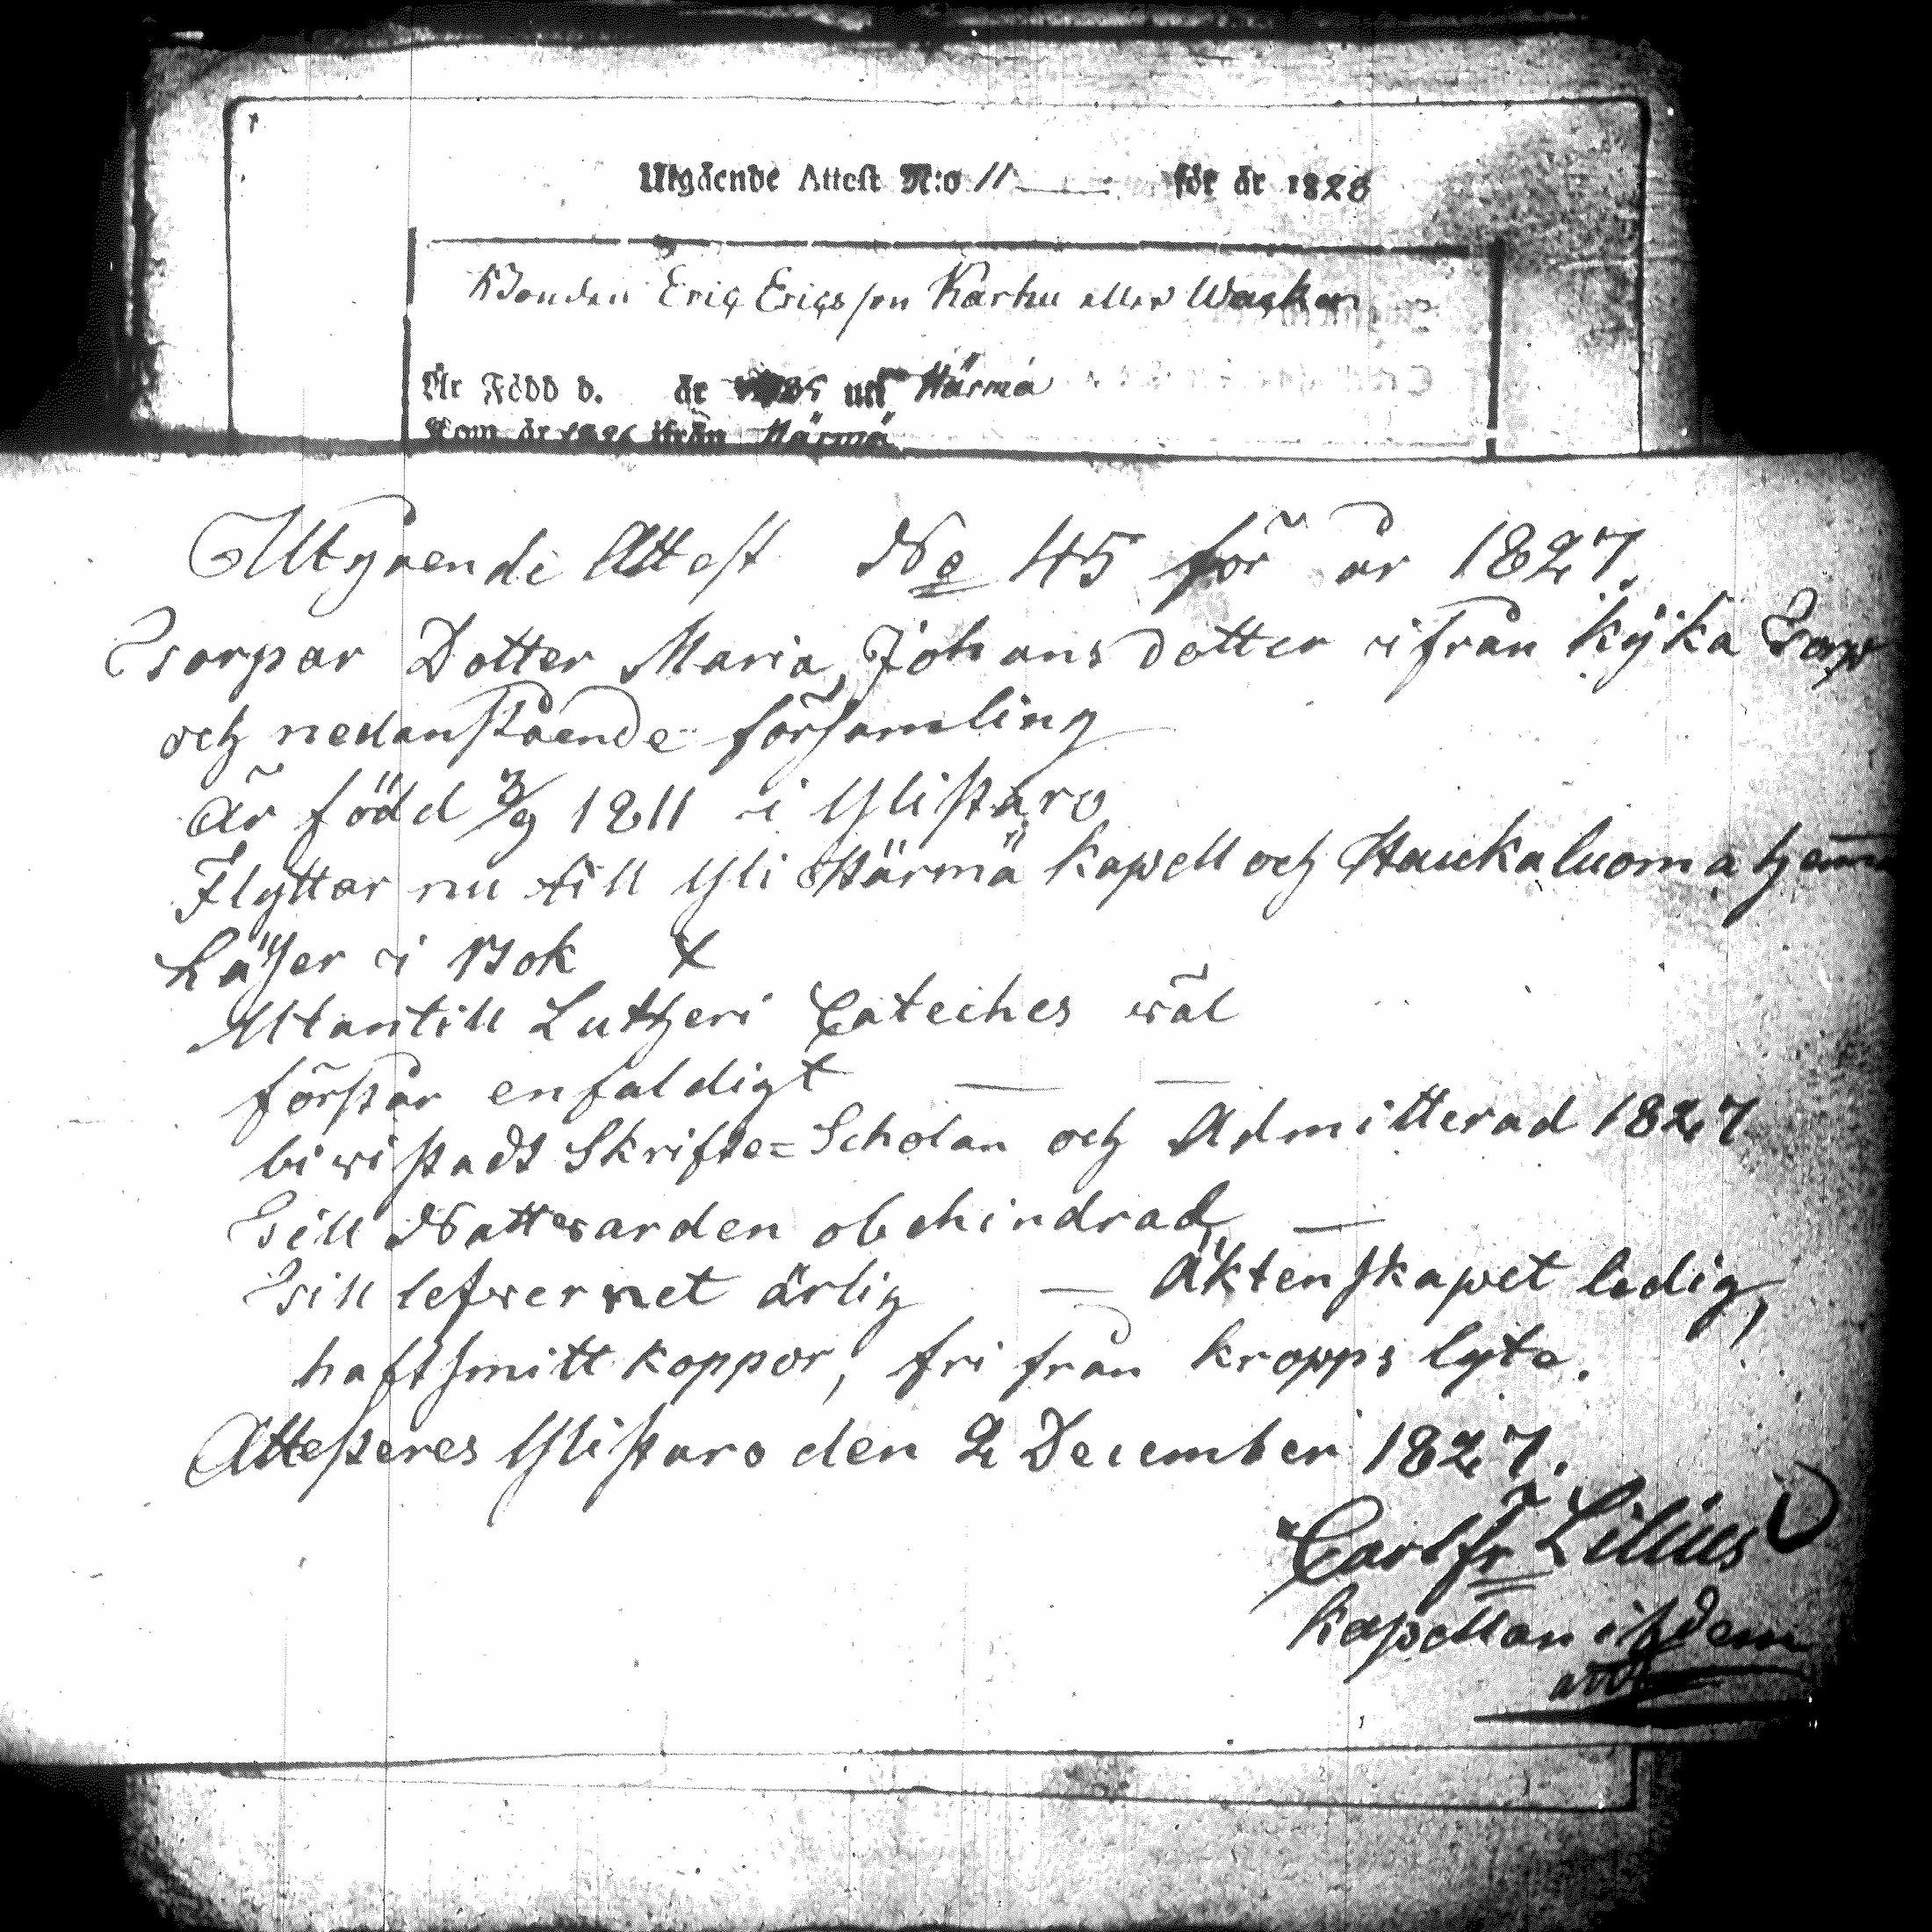 Utgående Attest N:o 11 för år 1828
Bonden Eric Ericsson Karhu eller Waskon
Är Född d. år uti Härmä
Kom år 1826 ifrån Härmä
Utgåendi Attest No 45 för år 1827.
Torpar Dotter Maria Johansdotter ifrån Kÿkä Torp
och nedanstående församling
är född 3/9 1811 i Ylistaro
Flyttar nu till Yli Härmä kapell och Haukaluoma hemm
Läser i Bok X
Utantill Lutheri Cateches wäl
förstår enfaldigt — —
biwistadt Skrifte=Scholan och Admitterad 1827
Till Nattwarden obehindrad —
Till lefwernet ärlig — Äktenskapet ledig,
haft smittkoppor, fri från kropps lyte.
Attesteres Ylistaro den 2 December 1827.
Carl Fr Lilius
kapellan ibdem